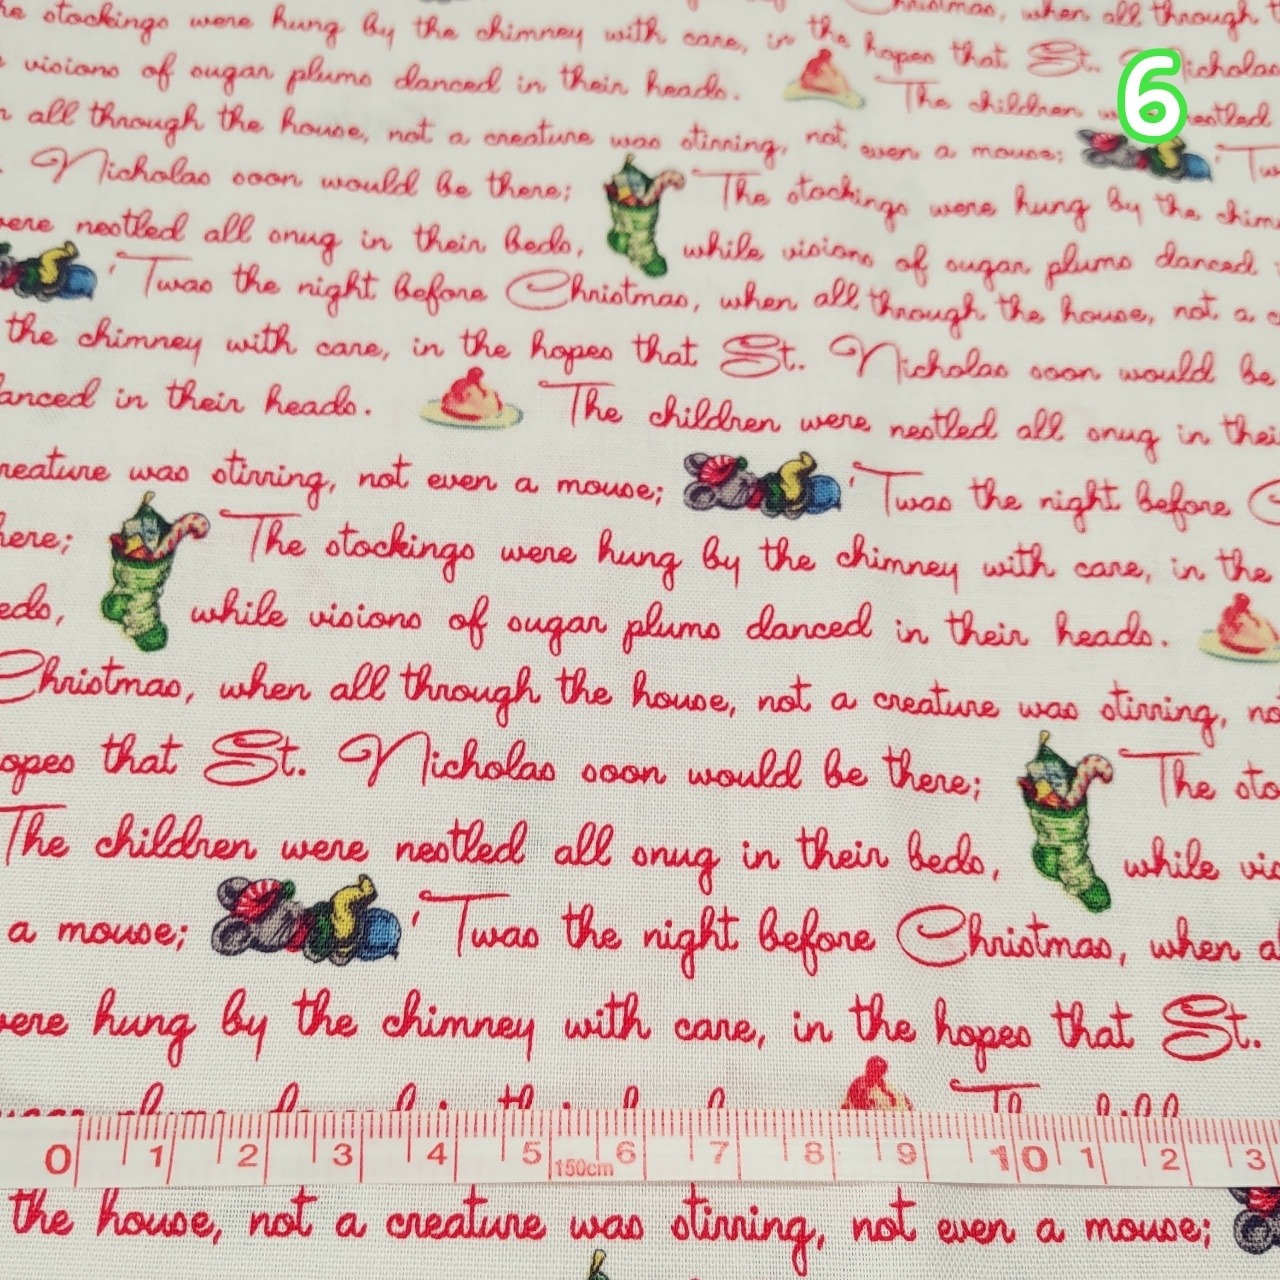 he stockings were hung by the chimney with care, in the hopes that St. Nicholas
visions of sugar plums danced in their heads. The children nestled
all through the house, not a creature was stirring, not even a mouse;
Nicholas soon would be there; The stockings were hung by the chim
were nestled all snug in their beds, while visions of sugar plums danced
'Twas the night before Christmas, when all through the house, not a c
the chimney with care, in the hopes that St. Nicholas soon would be
danced in their heads. The children were nestled all snug in thei
reature was stirring, not even a mouse; 'Twas the night before C
here; The stockings were hung by the chimney with care, in the
eds, while visions of sugar plums danced in their heads.
Christmas, when all through the house, not a creature was stirring, no
opes that St. Nicholas soon would be there; The sto
The children were nestled all snug in their beds, while vis
a mouse; 'Twas the night before Christmas, when a
were hung by the chimney with care, in the hopes that St.
0 1 2 3 4 5 150cm 6 7 8 9 10 1 2 3
the house, not a creature was stirring, not even a mouse;
6